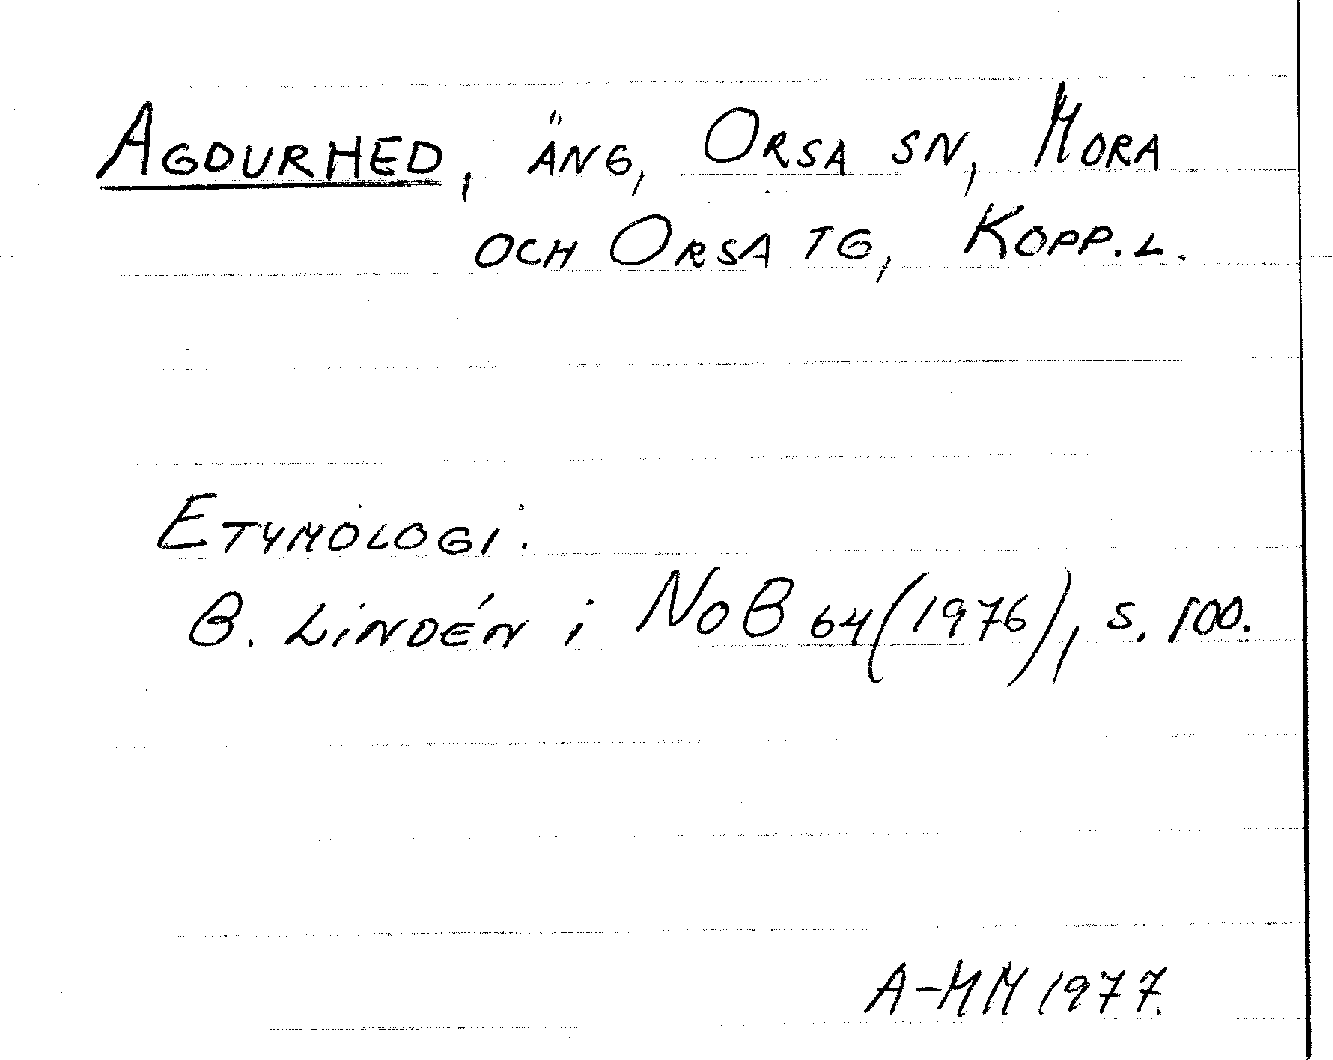 AGDURHED, ÄNG, ORSA SN, MORA
OCH ORSA TG, KOPP.L.
ETYMOLOGI:
B. LINDÉN i NoB 64 (1976), s. 100.
A-MM 1977.